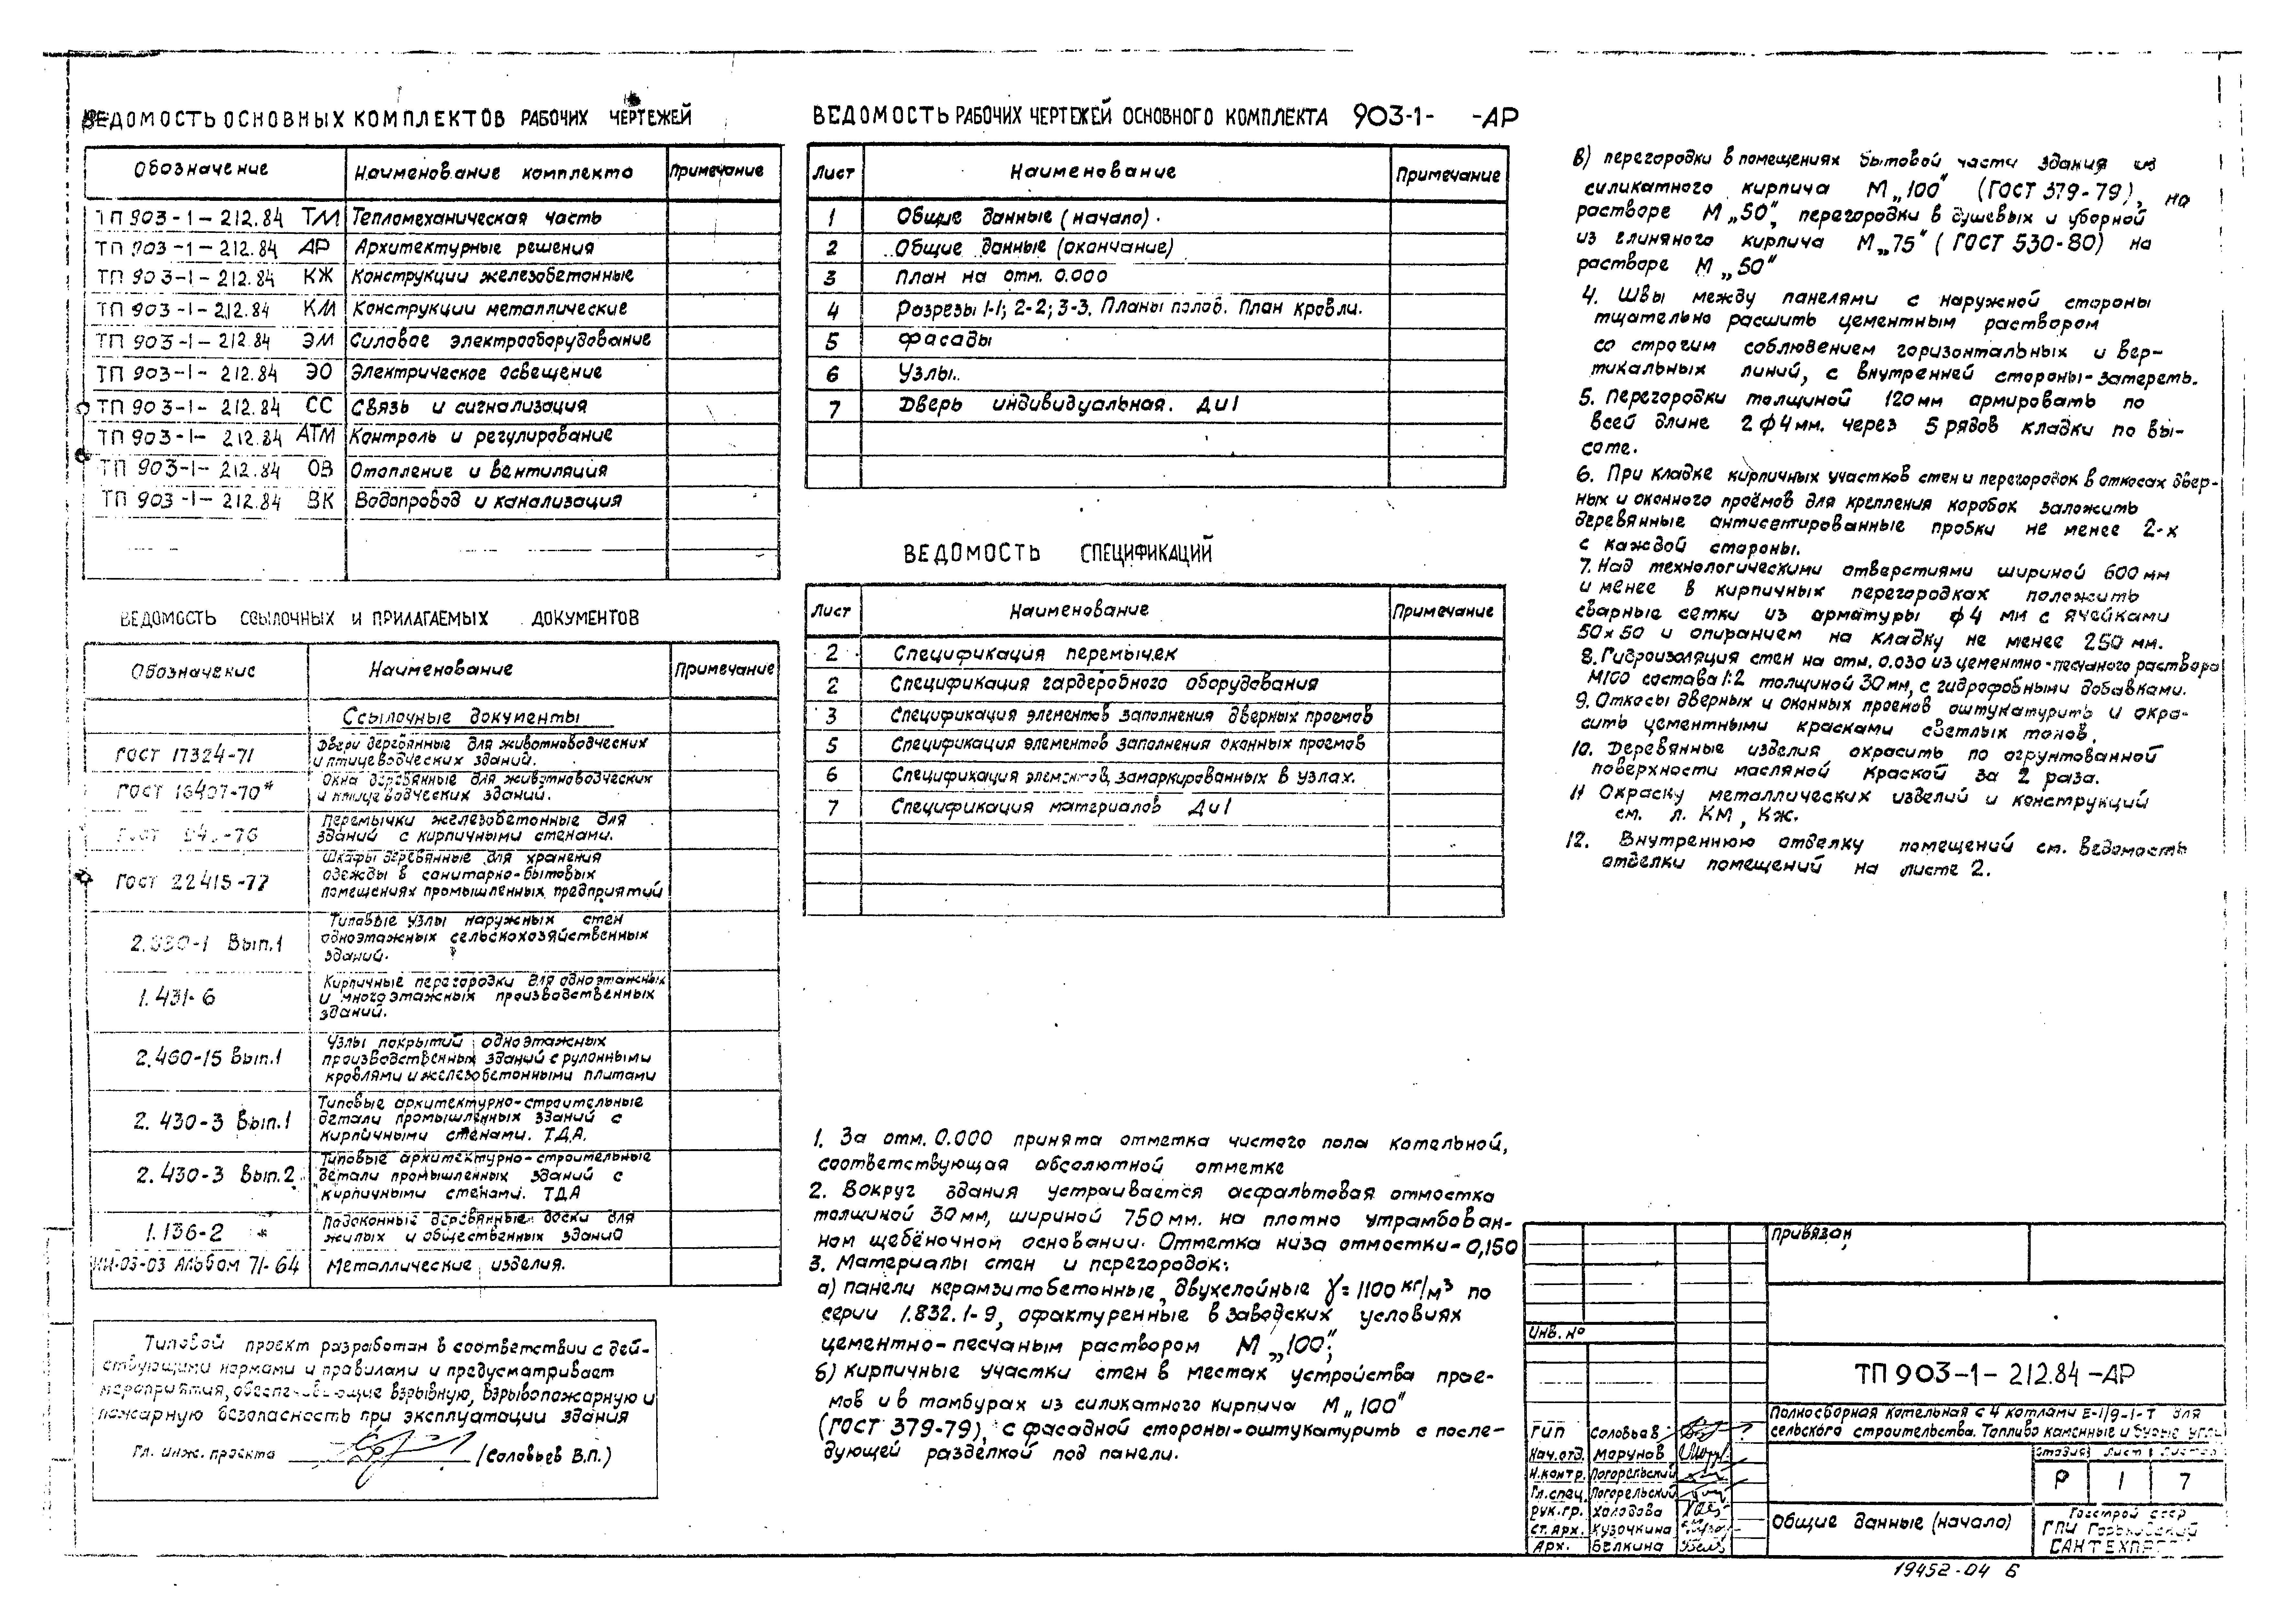 ВЕДОМОСТЬ ОСНОВНЫХ КОМПЛЕКТОВ РАБОЧИХ ЧЕРТЕЖЕЙ
Обозначение Наименование комплекта Примечание
ТП 903-1-212.84 ТМ Тепломеханическая часть
ТП 903-1-212.84 АР Архитектурные решения
ТП 903-1-212.84 КЖ Конструкции железобетонные
ТП 903-1-212.84 КМ Конструкции металлические
ТП 903-1-212.84 ЭМ Силовое электрооборудование
ТП 903-1-212.84 ЭО Электрическое освещение
ТП 903-1-212.84 СС Связь и сигнализация
ТП 903-1-212.84 АТМ Контроль и регулирование
ТП 903-1-212.84 ОВ Отопление и вентиляция
ТП 903-1-212.84 ВК Водопровод и канализация
ВЕДОМОСТЬ ССЫЛОЧНЫХ И ПРИЛАГАЕМЫХ ДОКУМЕНТОВ
Обозначение Наименование Примечание
Ссылочные документы
ГОСТ 17324-71 Двери деревянные для животноводческих
и птицеводческих зданий.
ГОСТ 16407-70* Окна деревянные для животноводческих
и птицеводческих зданий.
Перемычки железобетонные для
зданий с кирпичными стенами.
ГОСТ 22415-77 Шкафы деревянные для хранения
одежды в санитарно-бытовых
помещениях промышленных предприятий
2.830-1 Вып.1 Типовые узлы наружных стен
одноэтажных сельскохозяйственных
зданий.
1.431-6 Кирпичные перегородки для одноэтажных
и многоэтажных производственных
зданий.
2.460-15 Вып.1 Узлы покрытий одноэтажных
производственных зданий с рулонными
кровлями и железобетонными плитами
2.430-3 Вып.1 Типовые архитектурно-строительные
детали промышленных зданий с
кирпичными стенами. ТДА.
2.430-3 Вып.2 Типовые архитектурно-строительные
детали промышленных зданий с
кирпичными стенами. ТДА
1.136-2 * Подоконные деревянные доски для
жилых и общественных зданий
ИИ-03-03 Альбом 71-64 Металлические изделия.
Типовой проект разработан в соответствии с дей-
ствующими нормами и правилами и предусматривает
мероприятия, обеспечивающие взрывную, взрывопожарную и
пожарную безопасность при эксплуатации здания
Гл. инж. проекта (Соловьев В.П.)
ВЕДОМОСТЬ РАБОЧИХ ЧЕРТЕЖЕЙ ОСНОВНОГО КОМПЛЕКТА 903-1- -АР
Лист Наименование Примечание
1 Общие данные (начало).
2 Общие данные (окончание)
3 План на отм. 0.000
4 Разрезы 1-1; 2-2; 3-3. Планы полов. План кровли.
5 Фасады
6 Узлы.
7 Дверь индивидуальная. Ди1
ВЕДОМОСТЬ СПЕЦИФИКАЦИЙ
Лист Наименование Примечание
2 Спецификация перемычек
2 Спецификация гардеробного оборудования
3 Спецификация элементов заполнения дверных проемов
5 Спецификация элементов заполнения оконных проемов
6 Спецификация элементов, замаркированных в узлах.
7 Спецификация материалов Ди1
1. За отм. 0.000 принята отметка чистого пола котельной,
соответствующая абсолютной отметке
2. Вокруг здания устраивается асфальтовая отмостка
толщиной 30мм, шириной 750мм. на плотно утрамбован-
ном щебёночном основании. Отметка низа отмостки-0,150
3. Материалы стен и перегородок:
а) панели керамзитобетонные, двухслойные γ=1100 кг/м³ по
серии 1.832.1-9, офактуренные в заводских условиях
цементно-песчаным раствором М„100";
б) кирпичные участки стен в местах устройства прое-
мов и в тамбурах из силикатного кирпича М„100"
(ГОСТ 379-79), с фасадной стороны-оштукатурить с после-
дующей разделкой под панели.
в) перегородки в помещениях бытовой части здания из
силикатного кирпича М„100" (ГОСТ 379-79), на
растворе М„50", перегородки в душевых и уборной
из глиняного кирпича М„75" (ГОСТ 530-80) на
растворе М„50"
4. Швы между панелями с наружной стороны
тщательно расшить цементным раствором
со строгим соблюдением горизонтальных и вер-
тикальных линий, с внутренней стороны-затереть.
5. Перегородки толщиной 120мм армировать по
всей длине 2ф4мм. через 5 рядов кладки по вы-
соте.
6. При кладке кирпичных участков стен и перегородок в откосах двер-
ных и оконного проёмов для крепления коробок заложить
деревянные антисептированные пробки не менее 2-х
с каждой стороны.
7. Над технологическими отверстиями шириной 600мм
и менее в кирпичных перегородках положить
сварные сетки из арматуры ф4 мм с ячейками
50×50 и опиранием на кладку не менее 250 мм.
8. Гидроизоляция стен на отм. 0.030 из цементно-песчаного раствора
М100 состава 1:2 толщиной 30мм, с гидрофобными добавками.
9. Откосы дверных и оконных проемов оштукатурить и окра-
сить цементными красками светлых тонов.
10. Деревянные изделия окрасить по огрунтованной
поверхности масляной краской за 2 раза.
11 Окраску металлических изделий и конструкций
см. л. КМ, КЖ.
12. Внутреннюю отделку помещений см. Ведомость
отделки помещений на листе 2.
Привязан
Инв. №
ТП 903-1-212.84-АР
Полносборная котельная с 4 котлами Е-1/9-1-Т для
сельского строительства. Топливо каменные и бурые угли
ГИП Соловьев
Нач.отд. Марунов
Н.контр. Погорельский
Гл.спец. Погорельский
Рук.гр. Холодова
Ст.арх. Кузочкина
Арх. Белкина
Стадия Лист Листов
Р 1 7
Общие данные (начало)
Госстрой СССР
ГПИ Горьковский
19452-04 6